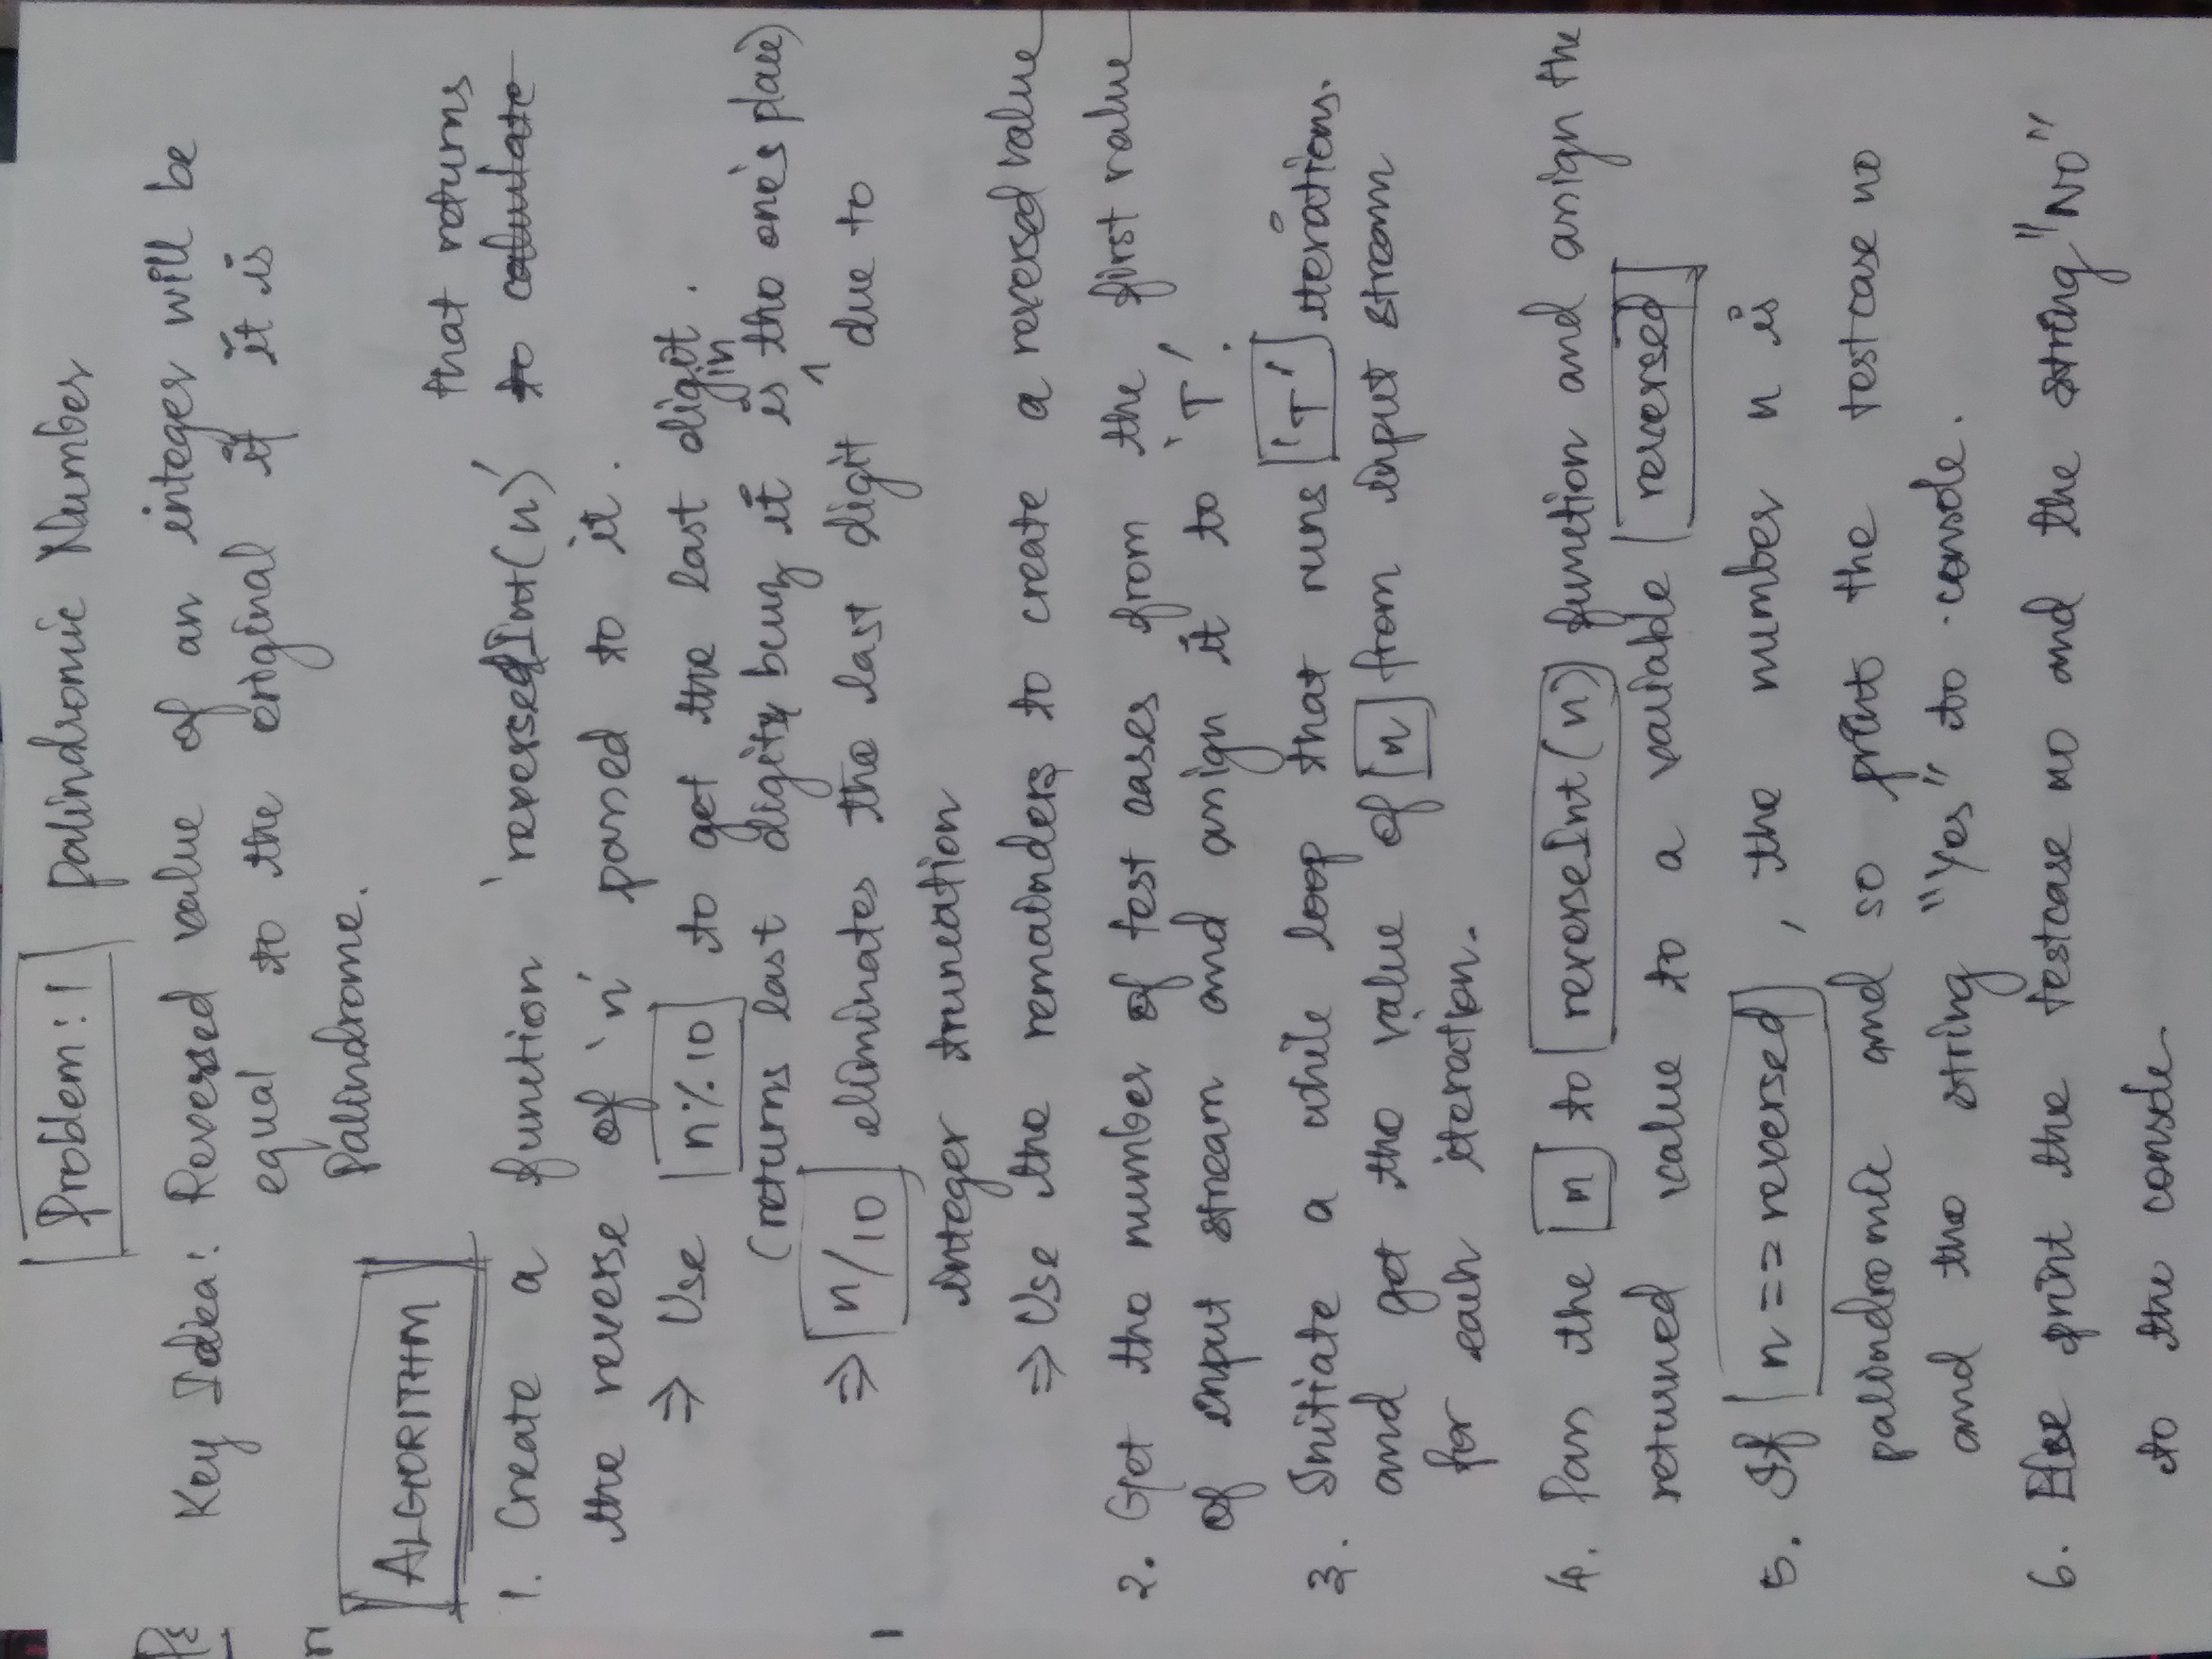 Problem: 1 Palindromic Number
Key Idea: Reversed value of an integer will be
equal to the original if it is
Palindrome.
ALGORITHM
that returns
1. Create a function 'reversedInt(n)' to calculate
the reverse of 'n' passed to it.
⇒ Use n%10 to get the last digit.
in
(returns last digit bcuz it is ^ the one's place)
⇒ n/10 eliminates the last digit due to
integer truncation
⇒ Use the remainders to create a reversed value
2. Get the number of test cases from the first value
of input stream and assign it to 'T'.
3. Initiate a while loop that runs 'T' iterations.
and get the value of n from input stream
for each iteration.
4. Pass the n to reverseInt(n) function and assign the
returned value to a variable reversed
5. If n == reversed, the number n is
palindromic and so print the testcase no
and the string "Yes" to console.
6. Else print the testcase no and the string "No"
to the console.